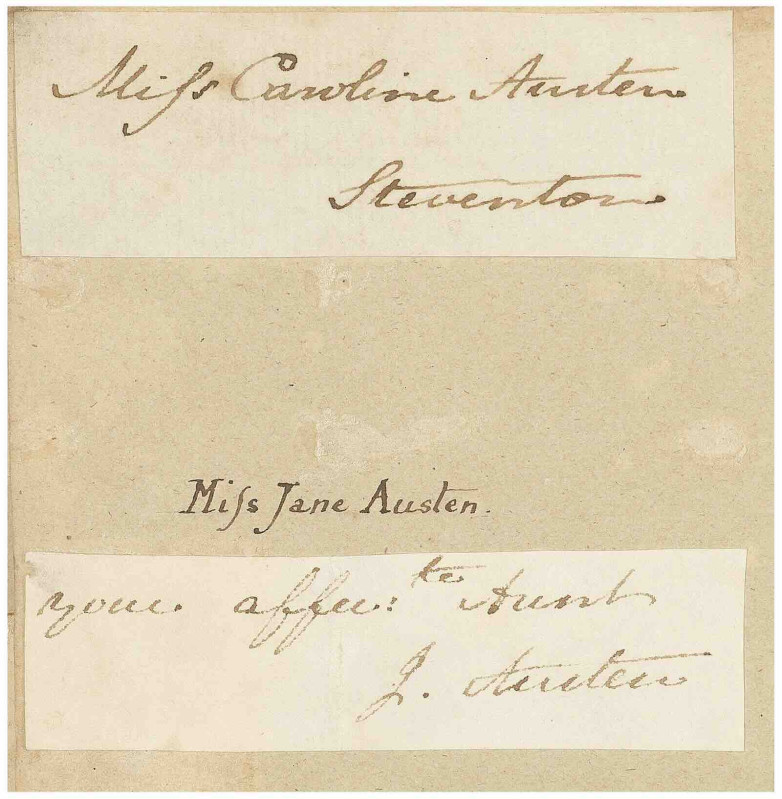 Miſs Caroline Austen
Steventon
Miſs Jane Austen.
your affec:te Aunt
J. Austen